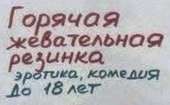 Горячая
жевательная
резинка
эротика, комедия
До 18 лет